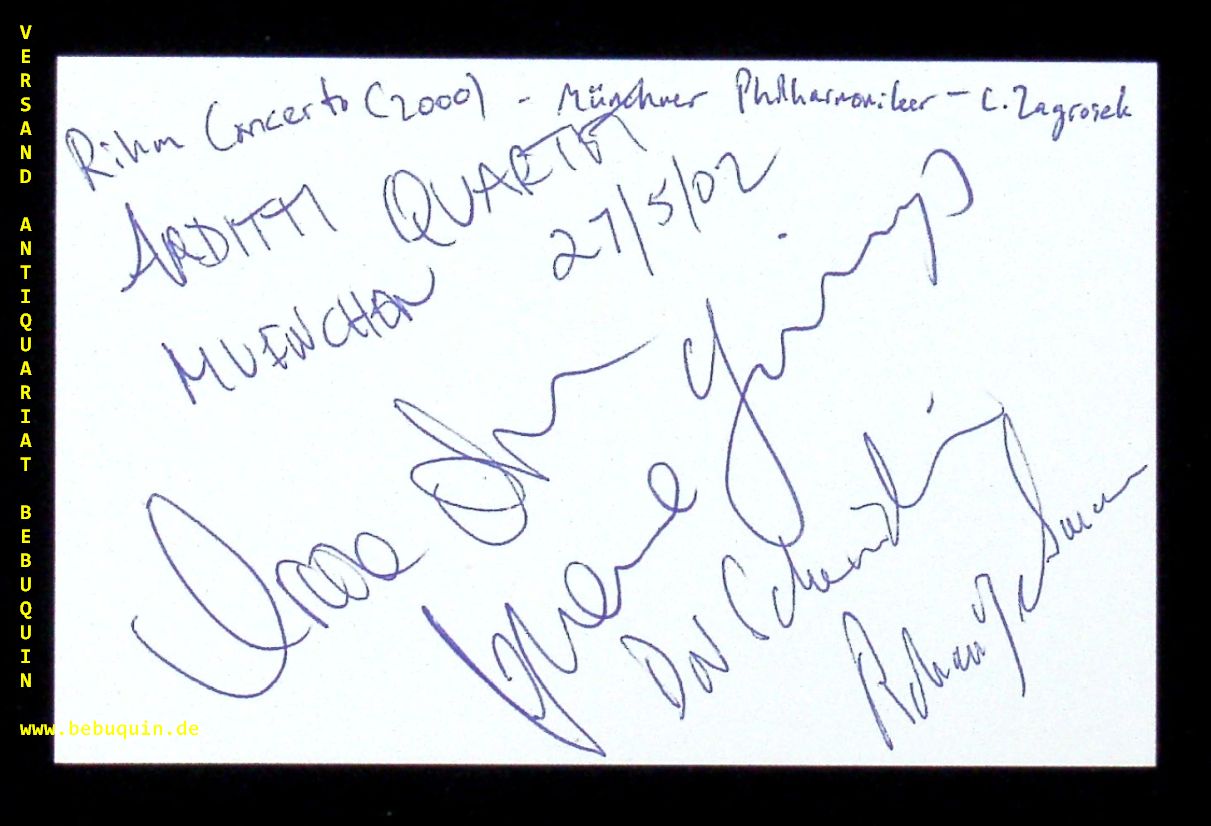 VERSAND ANTIQUARIAT BEBUQUIN
Rihm Concerto (2000) - Münchner Philharmoniker - L. Zagrosek
ARDITTI QUARTET
MUENCHEN 27/5/02
Dov Scheindlin
Rohan de Saram
www.bebuquin.de